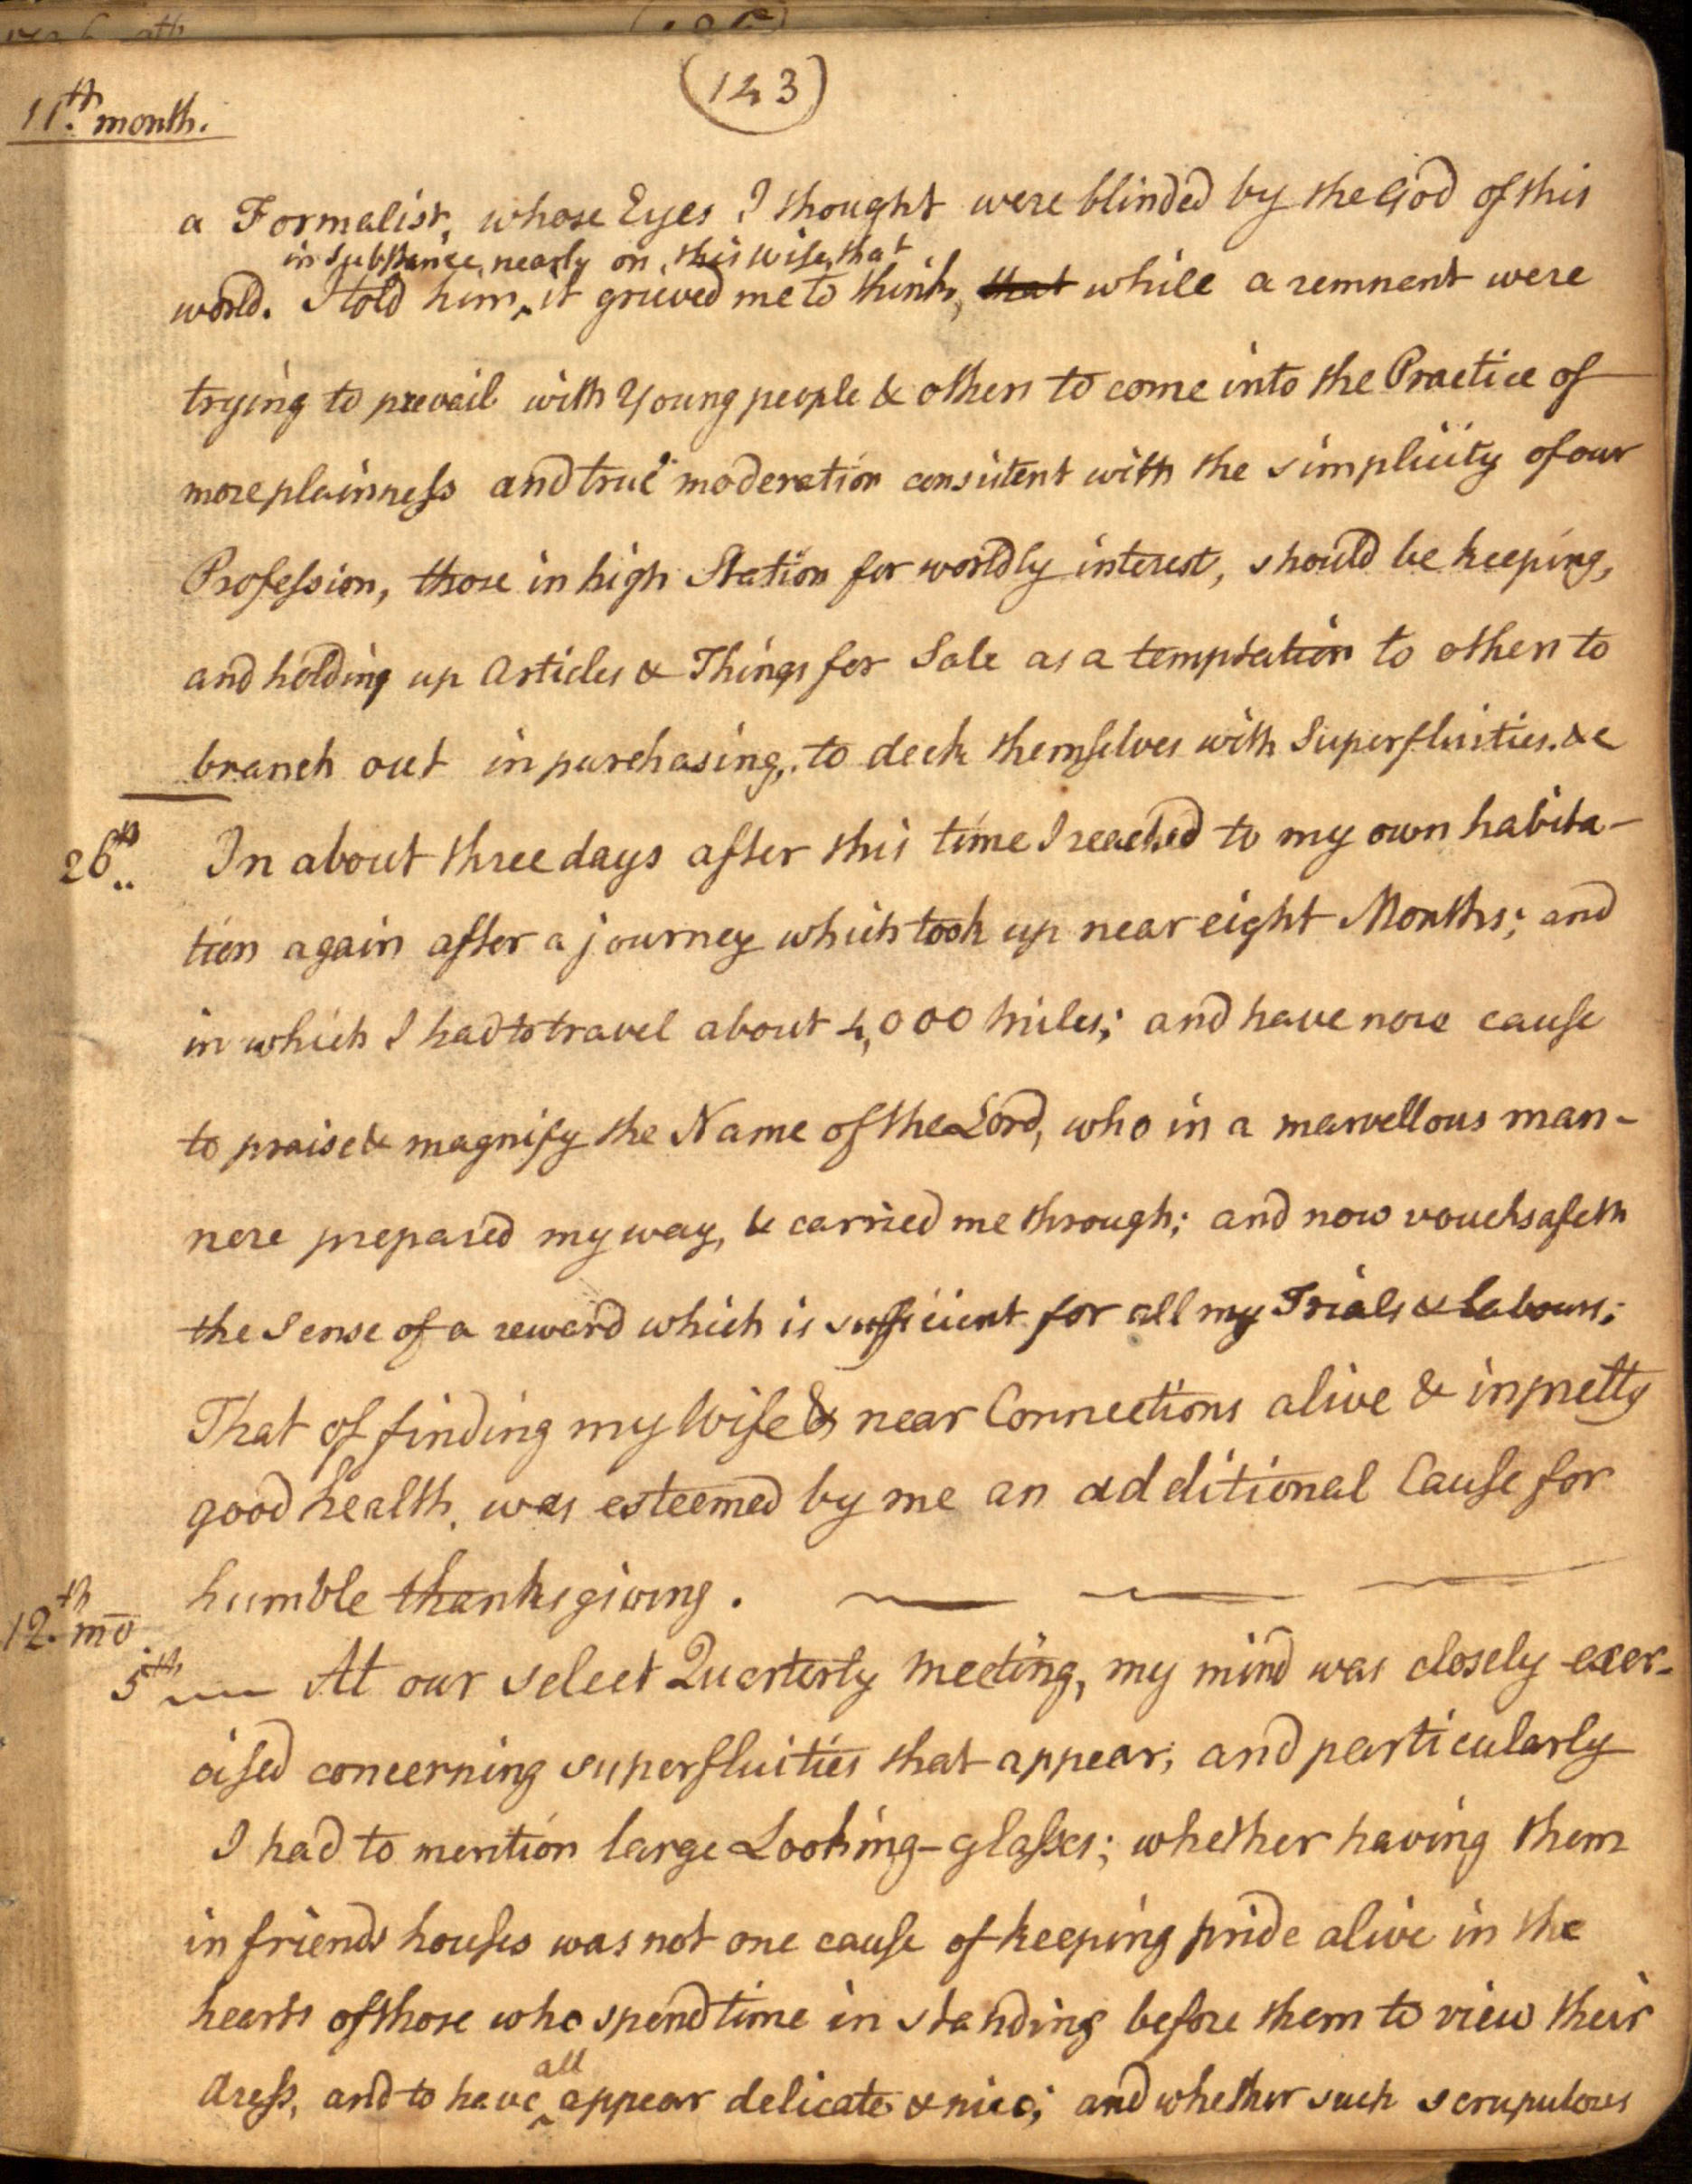 (143)
11th month.
a Formalist, whose Eyes I thought were blinded by the God of this
in substance, nearly on this wise, that
world. I told him ^ it grieved me to think, that while a remnant were
trying to prevail with Young people & others to come into the Practice of
more plainness and true moderation consistent with the simplicity of our
Profession, those in high Station for worldly interest, should be keeping,
and holding up Articles & Things for Sale as a temptation to others to
branch out in purchasing, to deck themselves with Superfluities. &c
26th In about three days after this time I reached to my own habita-
tion again after a journey which took up near eight Months; and
in which I had to travel about 4,000 miles; and have now cause
to praise & magnify the Name of the Lord, who in a marvellous man-
nere prepared my way, & carried me through; and now vouchsafeth
the Sense of a reward which is sufficient for all my Trials & labours;
That of finding my Wife & near Connections alive & in pretty
good health, was esteemed by me an additional Cause for
humble thanksgiving.
12th mo
5th At our select Quarterly meeting, my mind was closely exer-
cised concerning superfluities that appear; and particularly
I had to mention large Looking-glasses; whether having them
in friends houses was not one cause of keeping pride alive in the
hearts of those who spend time in standing before them to view their
all
dress, and to have ^ appear delicate & nice; and whether such scrupulous